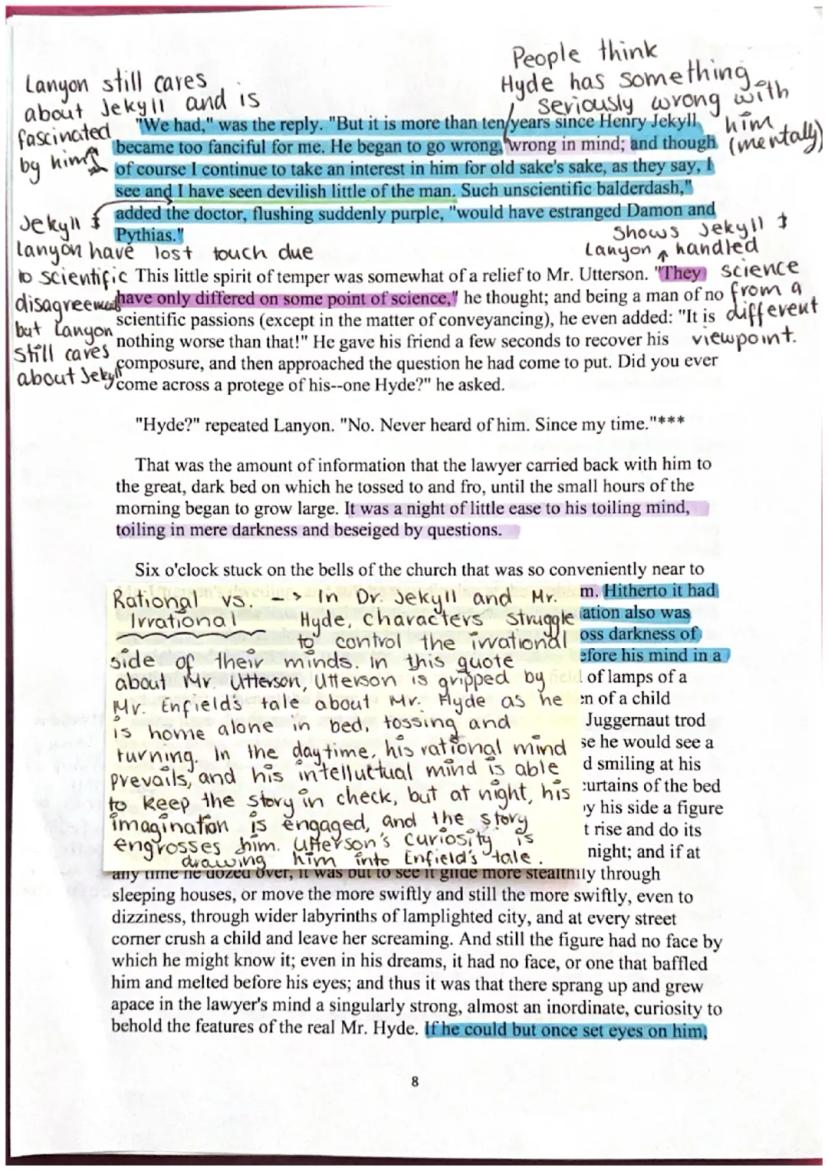 Lanyon still cares
about Jekyll and is
fascinated
by him
People think
Hyde has something
seriously wrong with
him
(mentally)
"We had," was the reply. "But it is more than ten years since Henry Jekyll
became too fanciful for me. He began to go wrong, wrong in mind; and though
of course I continue to take an interest in him for old sake's sake, as they say, I
see and I have seen devilish little of the man. Such unscientific balderdash,"
added the doctor, flushing suddenly purple, "would have estranged Damon and
Pythias."
Jekyll &
Lanyon have lost touch due
to scientific
disagreement
but Lanyon
still cares
about Jekyll
Shows Jekyll &
Lanyon handled
science
from a
different
viewpoint.
This little spirit of temper was somewhat of a relief to Mr. Utterson. "They
have only differed on some point of science," he thought; and being a man of no
scientific passions (except in the matter of conveyancing), he even added: "It is
nothing worse than that!" He gave his friend a few seconds to recover his
composure, and then approached the question he had come to put. Did you ever
come across a protege of his--one Hyde?" he asked.
"Hyde?" repeated Lanyon. "No. Never heard of him. Since my time."***
That was the amount of information that the lawyer carried back with him to
the great, dark bed on which he tossed to and fro, until the small hours of the
morning began to grow large. It was a night of little ease to his toiling mind,
toiling in mere darkness and beseiged by questions.
Six o'clock stuck on the bells of the church that was so conveniently near to
m. Hitherto it had
ation also was
oss darkness of
efore his mind in a
of lamps of a
n of a child
Juggernaut trod
se he would see a
d smiling at his
curtains of the bed
y his side a figure
t rise and do its
night; and if at
Rational vs. --> In Dr. Jekyll and Mr.
Irrational Hyde, characters struggle
to control the irrational
side of their minds. In this quote
about Mr. Utterson, Utterson is gripped by
Mr. Enfield's tale about Mr. Hyde as he
is home alone in bed, tossing and
turning. In the daytime, his rational mind
prevails, and his intelluctual mind is able
to keep the story in check, but at night, his
imagination is engaged, and the story
engrosses him. Utterson's curiosity is
drawing him into Enfield's tale.
any time he dozed over, it was but to see it glide more stealthily through
sleeping houses, or move the more swiftly and still the more swiftly, even to
dizziness, through wider labyrinths of lamplighted city, and at every street
corner crush a child and leave her screaming. And still the figure had no face by
which he might know it; even in his dreams, it had no face, or one that baffled
him and melted before his eyes; and thus it was that there sprang up and grew
apace in the lawyer's mind a singularly strong, almost an inordinate, curiosity to
behold the features of the real Mr. Hyde. If he could but once set eyes on him,
8